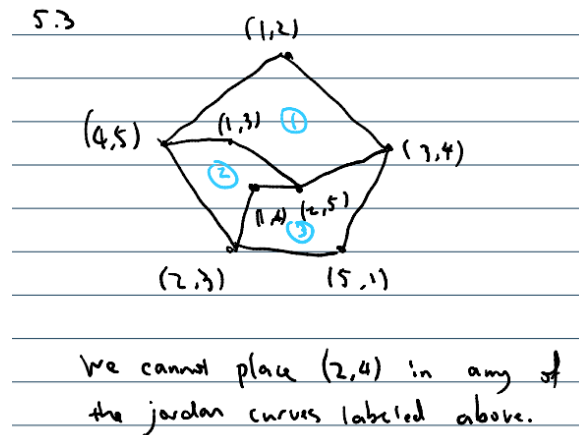 5.3
(1,2)
(4,5)
(1,3)
①
(3,4)
②
(1,4) (2,5)
③
(2,3)
(5,1)
We cannot place (2,4) in any of
the jordan curves labeled above.